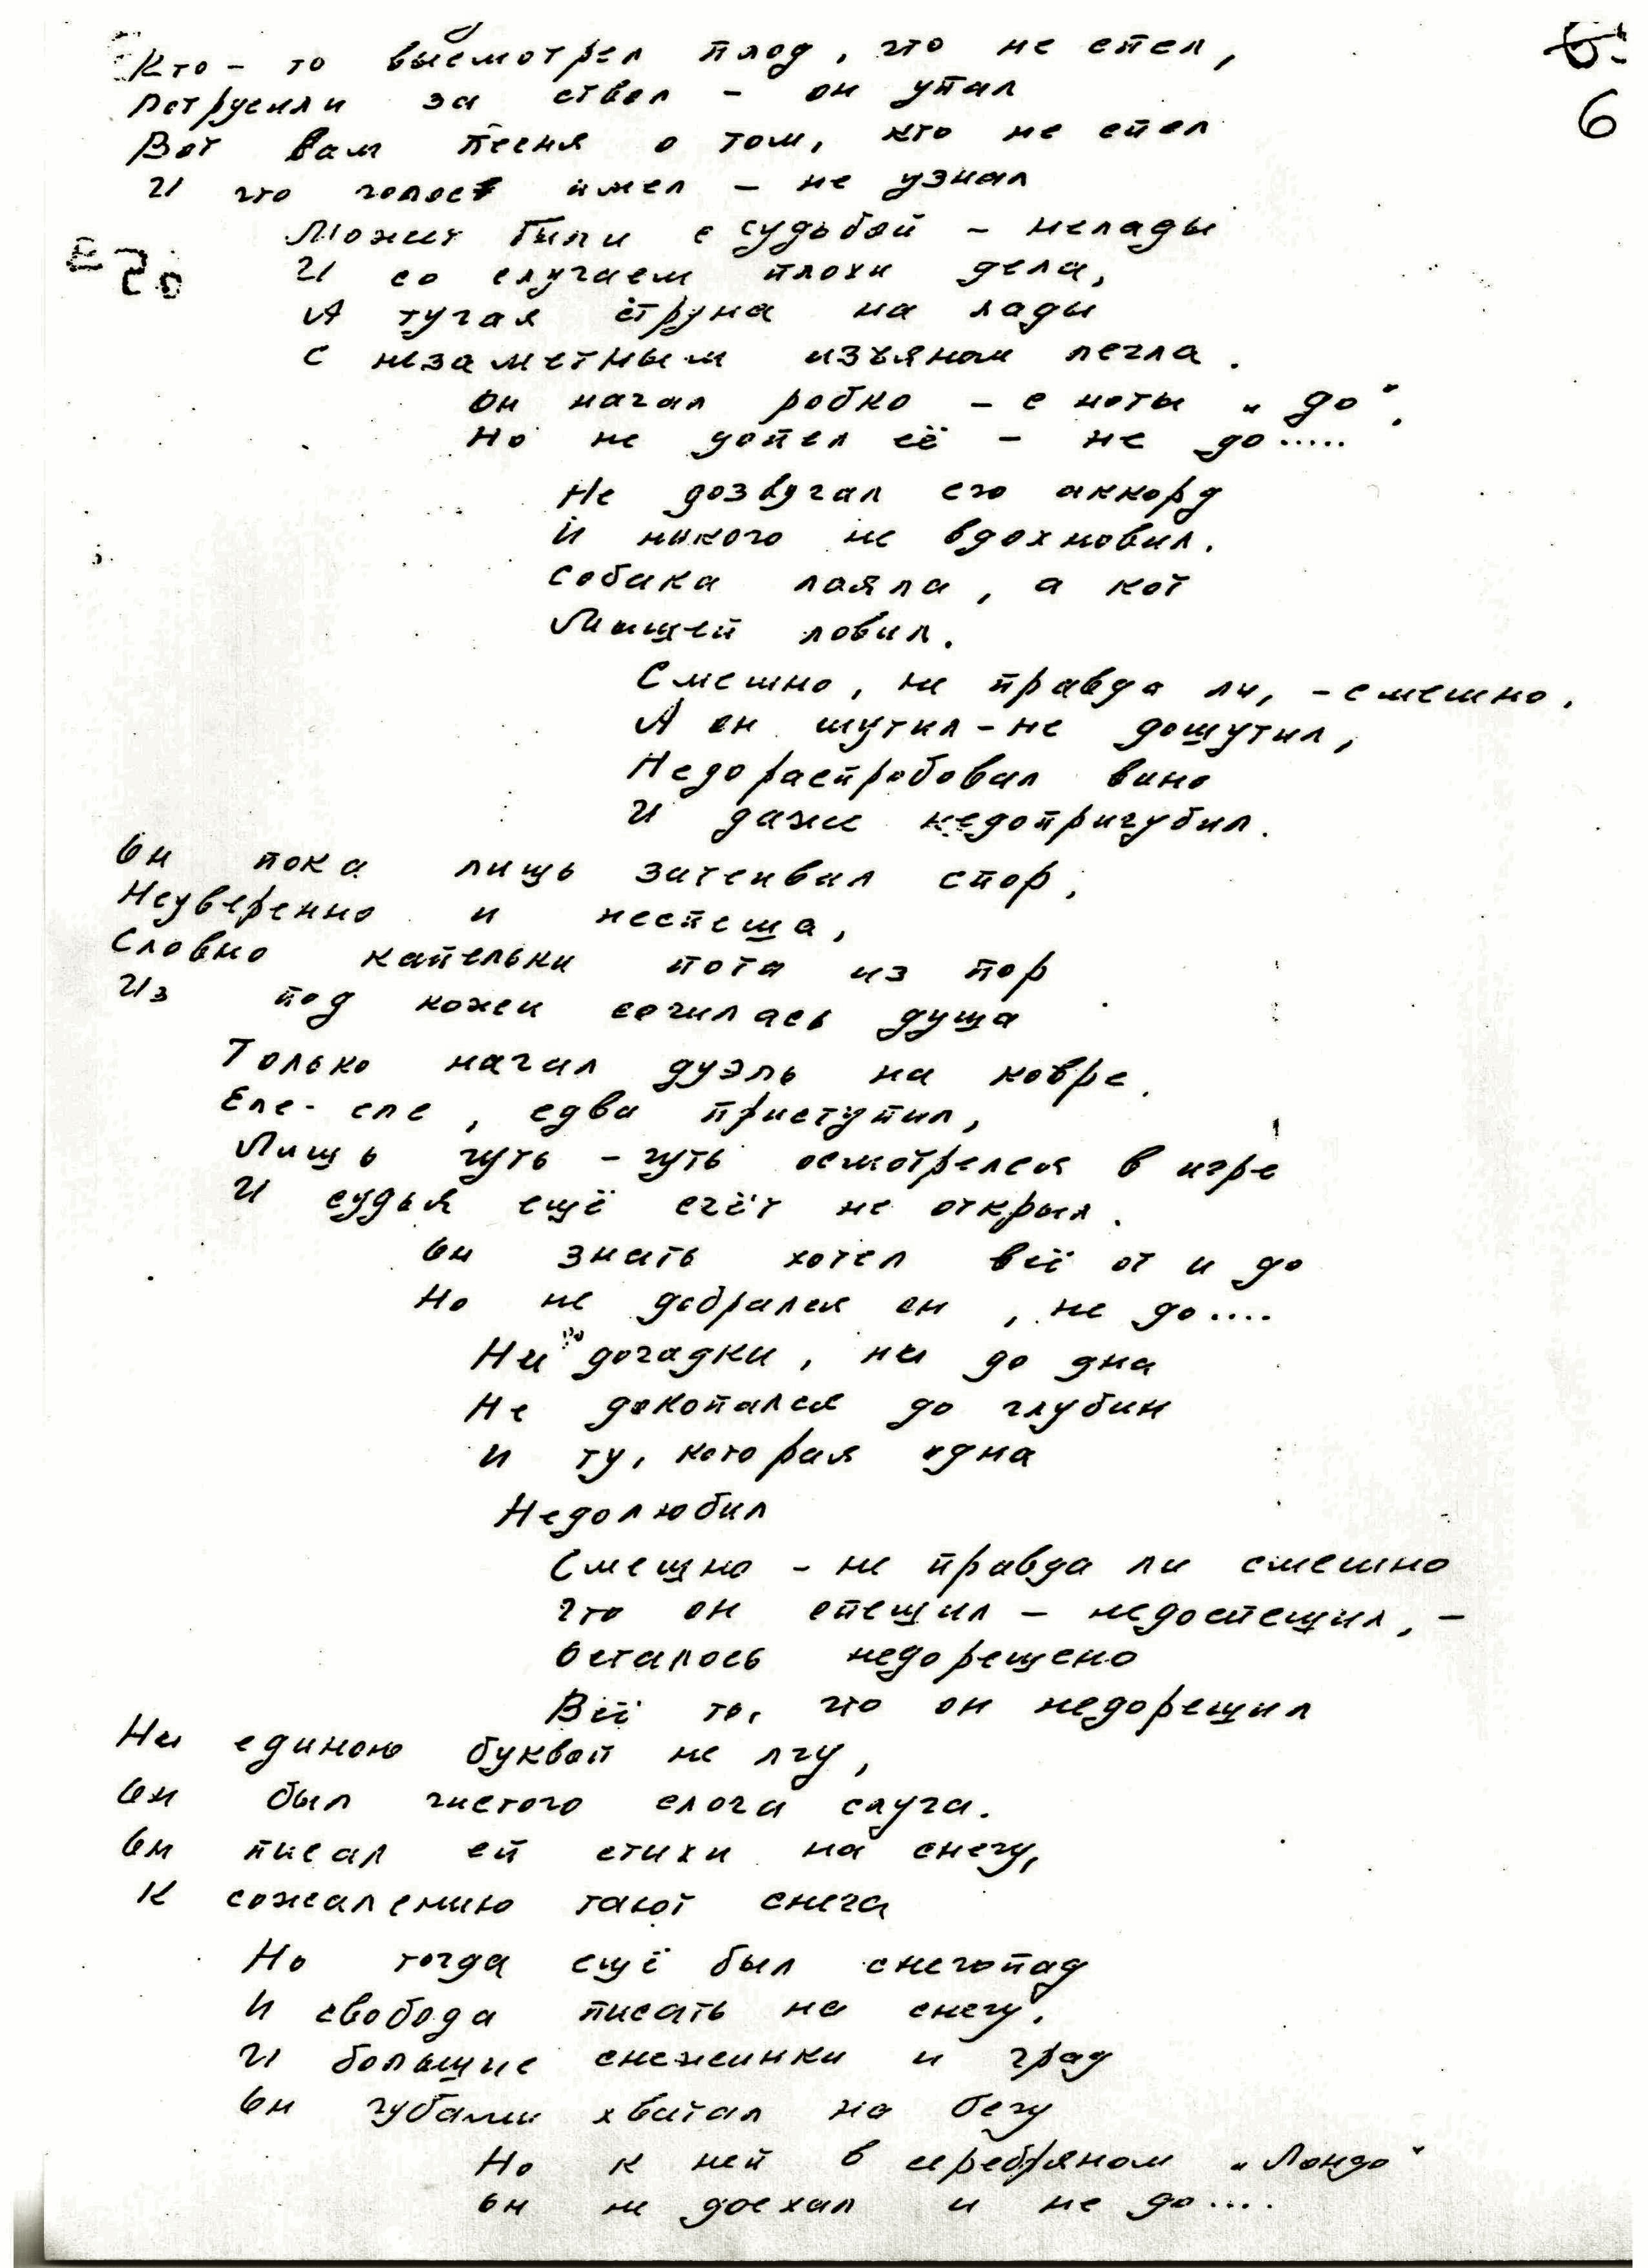 Кто-то высмотрел плод, что не спел,
6
Потрусили за ствол – он упал
Вот вам песня о том, кто не спел
И что голос имел – не узнал
Может были с судьбой – нелады
И со случаем плохи дела,
А тугая струна на лады
С незаметным изъяном легла.
Он начал робко – с ноты „до“.
Но не допел её – не до.....
Не дозвучал его аккорд
И никого не вдохновил.
Собака лаяла, а кот
Мышей ловил.
Смешно, не правда ли, – смешно.
А он шутил – не дошутил,
Недораспробовал вино
И даже недопригубил.
Он пока лишь затеивал спор,
Неуверенно и неспеша,
Словно капельки пота из пор
Из под кожи сочилась душа
Только начал дуэль на ковре.
Еле-еле, едва приступил,
Лишь чуть-чуть осмотрелся в игре
И судья ещё счёт не открыл.
Он знать хотел всё от и до
Но не добрался он, не до....
Ни до догадки, ни до дна
Не докопался до глубин
И ту, которая одна
Недолюбил
Смешно – не правда ли смешно
Что он спешил – недоспешил, –
Осталось недорешено
Всё то, что он недорешил
Ни единою буквой не лгу,
Он был чистого слога слуга.
Он писал ей стихи на снегу,
К сожалению тают снега
Но тогда ещё был снегопад
И свобода писать на снегу.
И большие снежинки и град
Он губами хватал на бегу
Но к ней в серебряном „Ландо“
Он не доехал и не до....